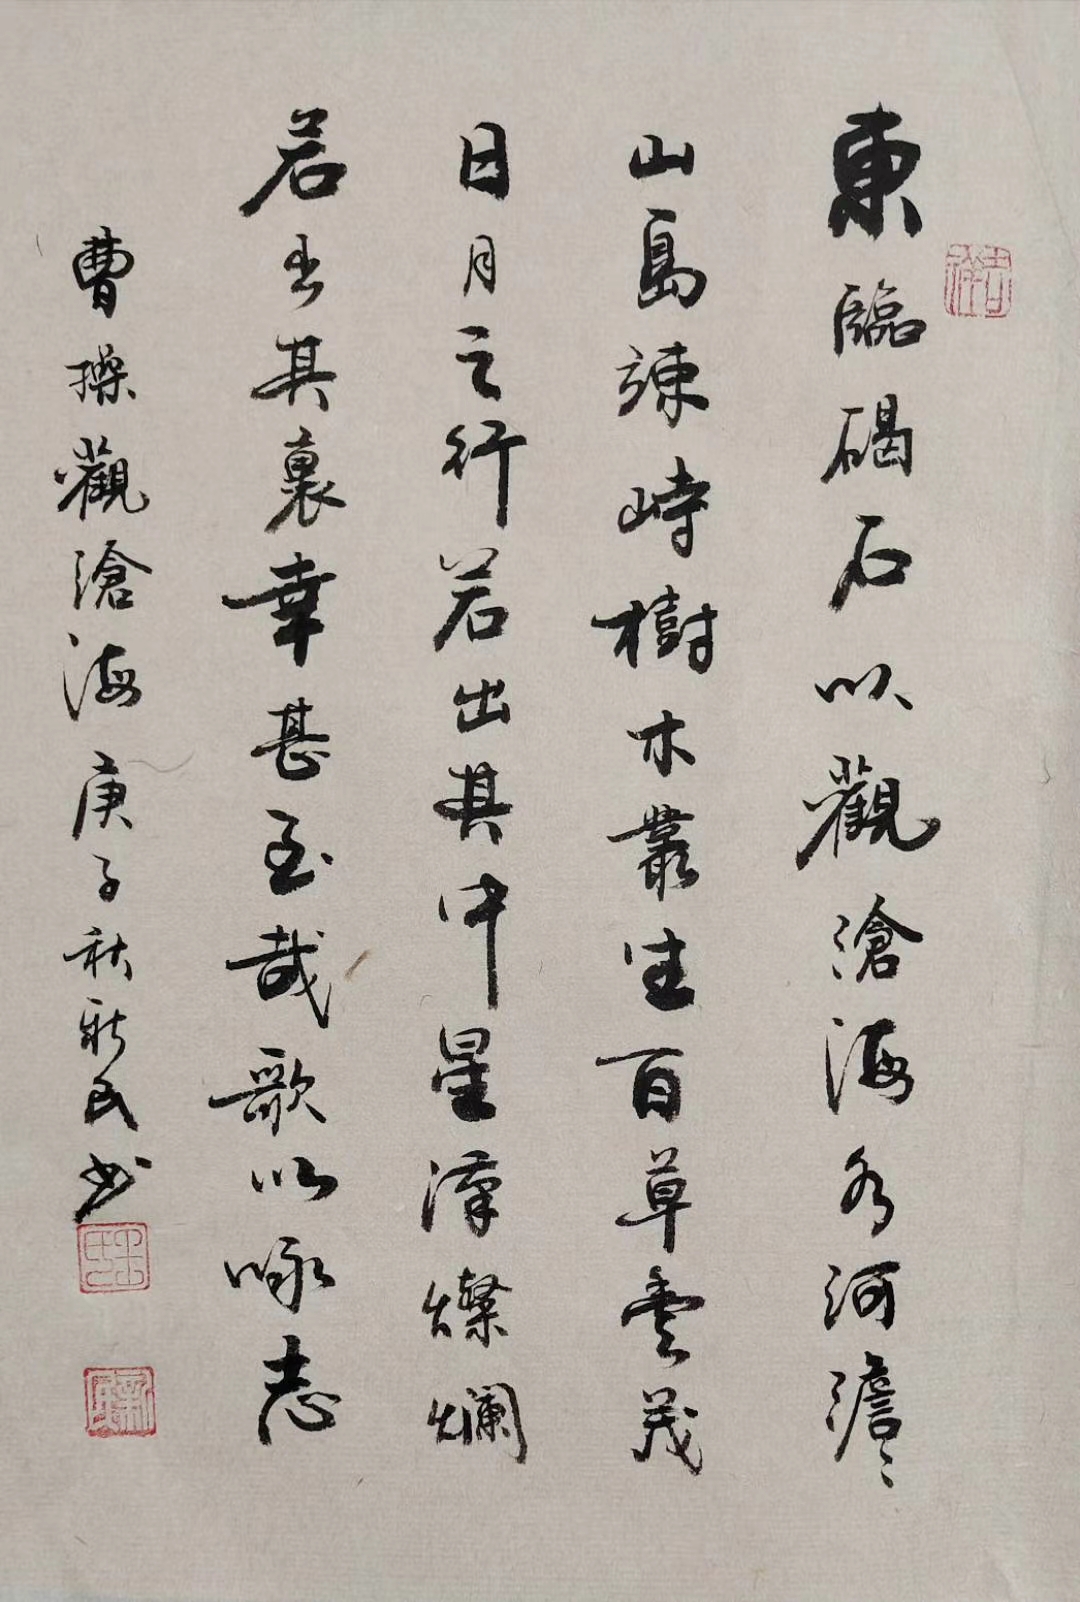 東臨碣石以觀滄海水河澹〻
山島竦峙樹木叢生百草豐茂
日月之行若出其中星漢燦爛
若出其裏幸甚至哉歌以咏志
曹操觀滄海庚子秋新民书
吉祥
新民